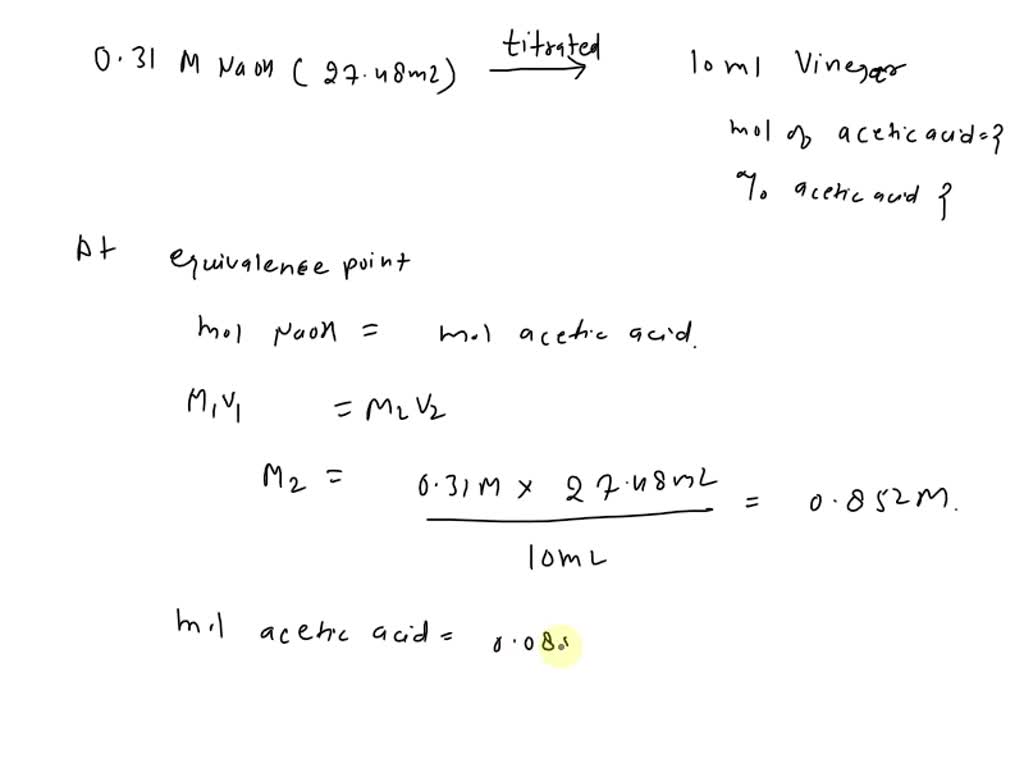 0.31 M NaOH ( 27.48mL) titrated → 10 ml Vinegar
mol of acetic acid = ?
% acetic acid ?
At equivalence point
mol NaOH = mol acetic acid.
M1V1 = M2V2
M2 = 0.31M × 27.48mL / 10mL = 0.852M.
mol acetic acid = 0.08